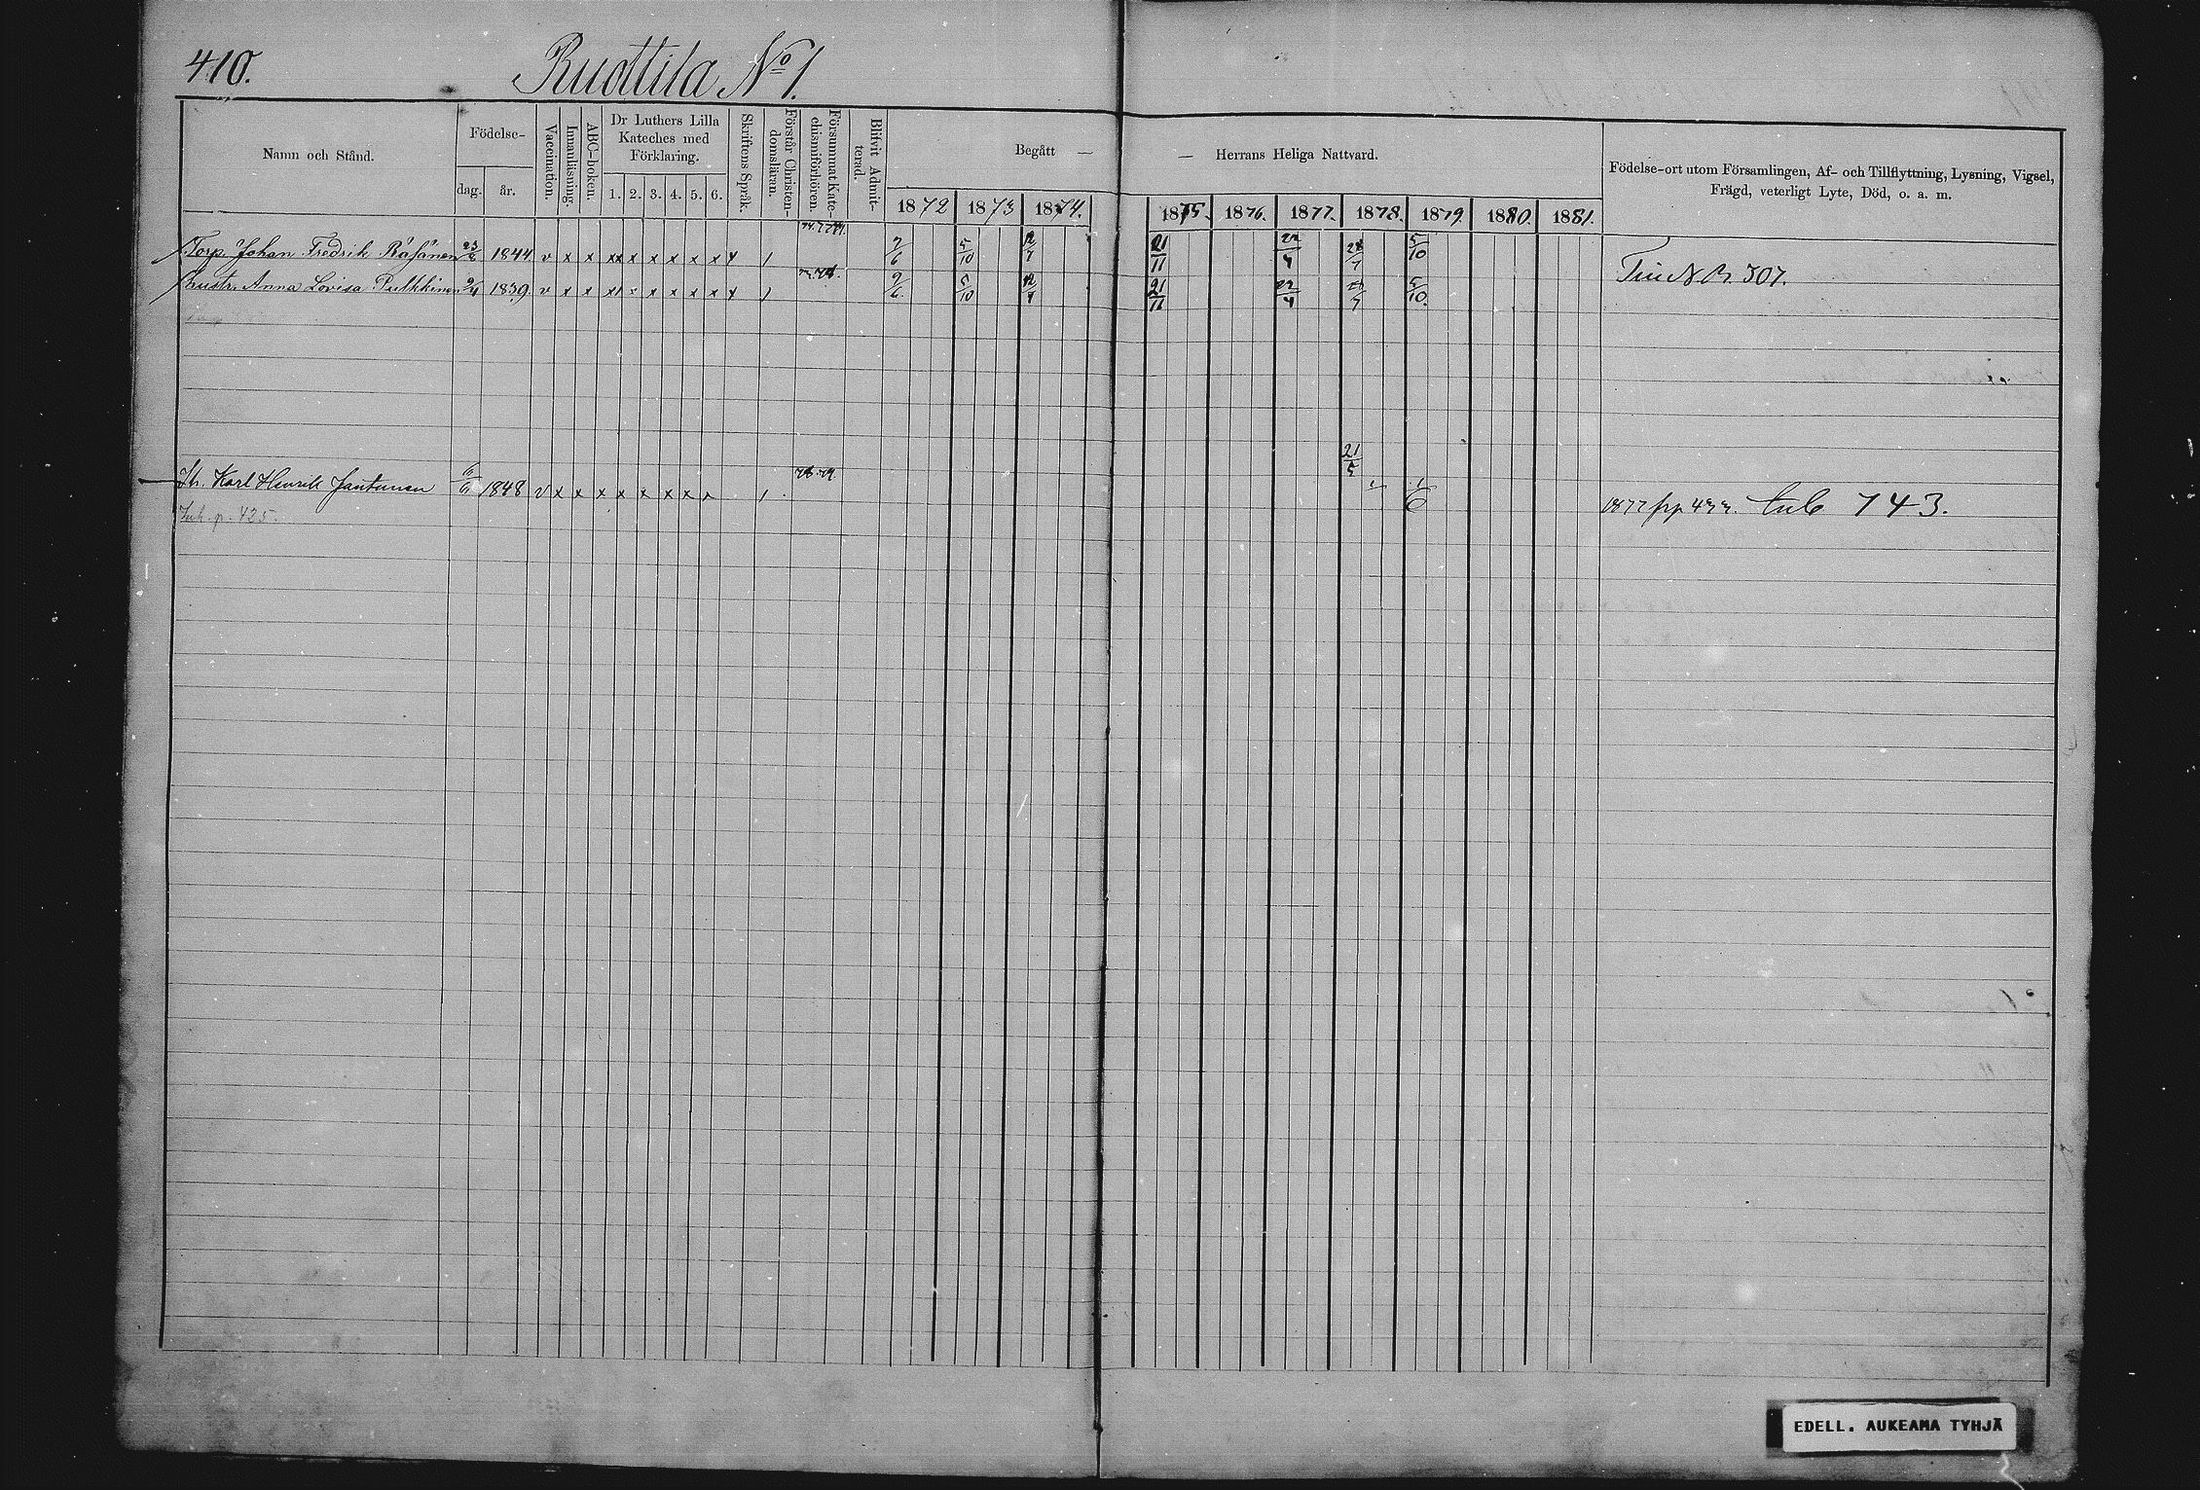 410. Ruottila No 1.
Namn och Stånd.
Födelse-
dag. år.
Vaccination.
Innanläsning.
ABC-boken.
Dr Luthers Lilla
Kateches med
Förklaring.
1. 2. 3. 4. 5. 6.
Skriftens Språk.
Förstår Christen-
domsläran.
Försummat Kate-
chismiförhören.
Blifvit Admit-
terad.
Begått — — Herrans Heliga Nattvard.
1872 1873 1874. 1875. 1876. 1877. 1878. 1879 1880. 1881.
Födelse-ort utom Församlingen, Af- och Tillflyttning, Lysning, Vigsel,
Frägd, veterligt Lyte, Död, o. a. m.
Torp. Johan Fredrik Räsänen 1844 v x x xx x x x x x 5/10 21/11 5/10
hustr. Anna Lovisa Pulkkinen 9/4 1839 v x x x x x x x 9/6 5/10 21/11 22/4 5/10. 307.
21/5
Karl Henrik Jantunen 6/6 1848 v x x x x x x x x
p. 425. 1877 frp 743.
EDELL. AUKEAMA TYHJÄ